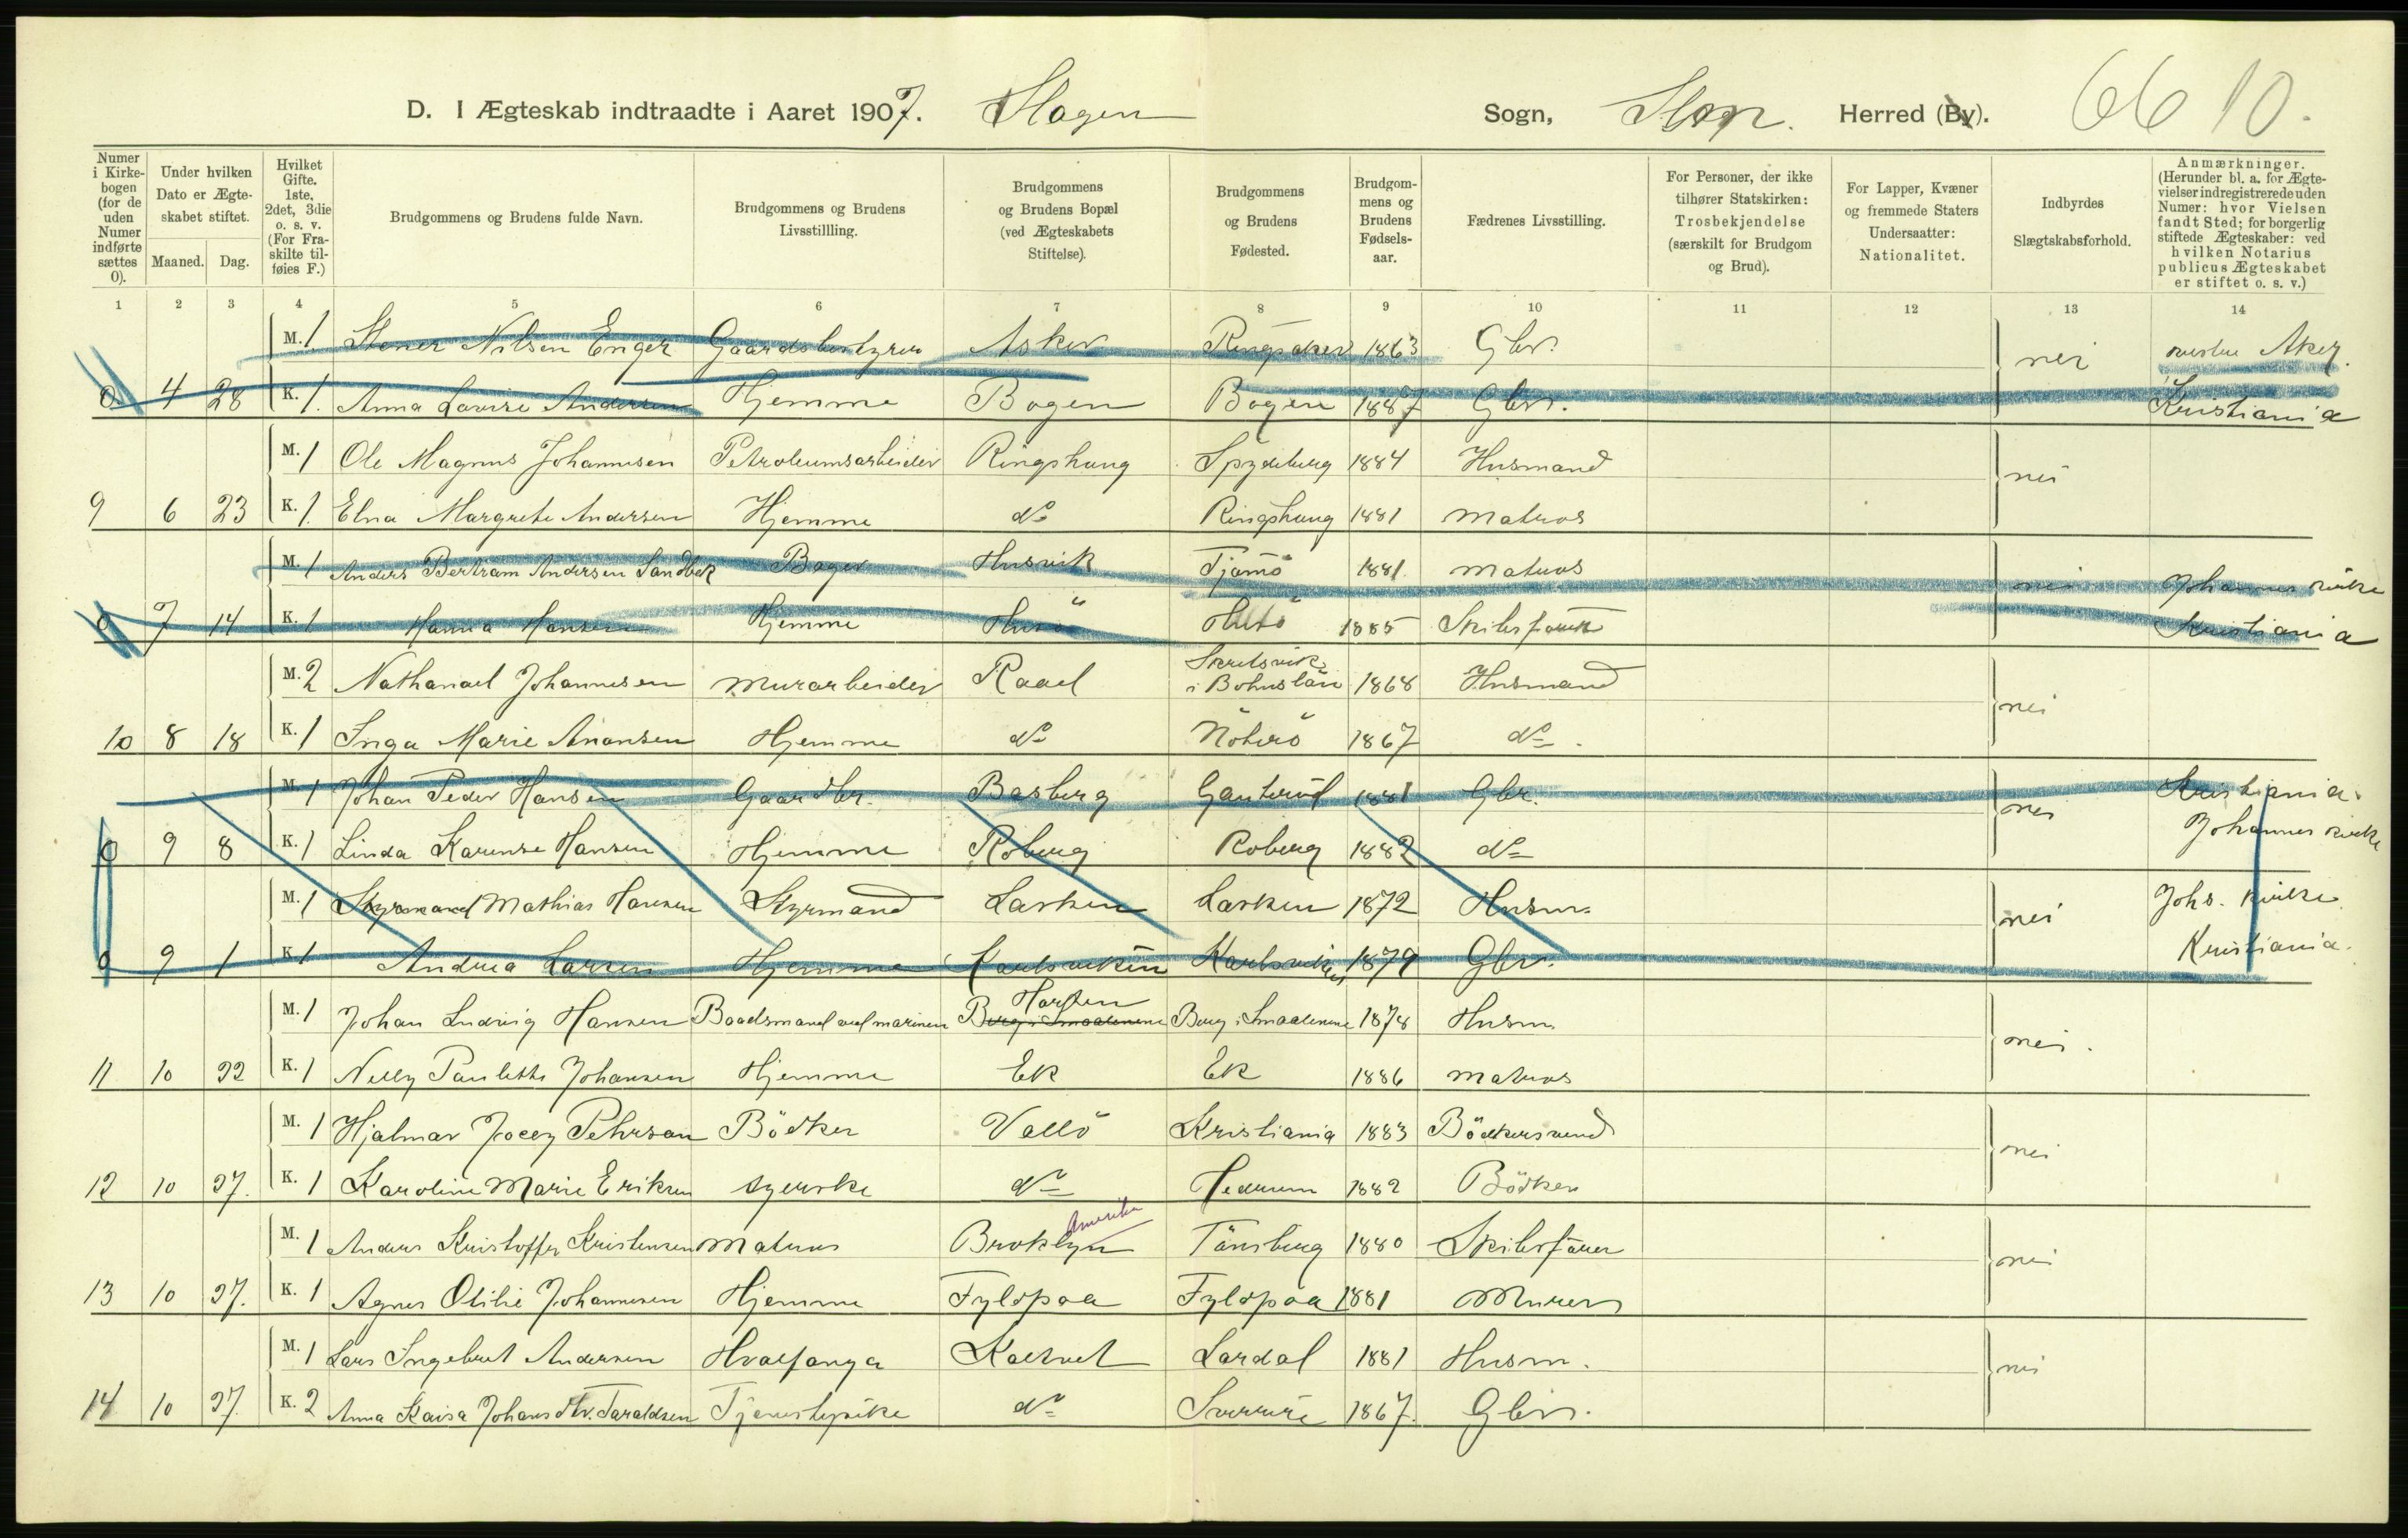 D. I Ægteskab indtraadte i Aaret 1907. Slagen Sogn, Sem. Herred (By). 66 10.
Numer i Kirkebogen (for de uden Numer indførte sættes 0).
Under hvilken Dato er Ægteskabet stiftet.
Maaned. Dag.
Hvilket Gifte. 1ste, 2det, 3die o. s. v. (For Fraskilte tilføies F.)
Brudgommens og Brudens fulde Navn.
Brudgommens og Brudens Livsstillling.
Brudgommens og Brudens Bopæl (ved Ægteskabets Stiftelse).
Brudgommens og Brudens Fødested.
Brudgommens og Brudens Fødselsaar.
Fædrenes Livsstilling.
For Personer, der ikke tilhører Statskirken: Trosbekjendelse (særskilt for Brudgom og Brud).
For Lapper, Kvæner og fremmede Staters Undersaatter: Nationalitet.
Indbyrdes Slægtskabsforhold.
Anmærkninger. (Herunder bl. a. for Ægtevielser indregistrerede uden Numer: hvor Vielsen fandt Sted; for borgerlig stiftede Ægteskaber: ved hvilken Notarius publicus Ægteskabet er stiftet o. s. v.)
1 2 3 4 5 6 7 8 9 10 11 12 13 14
M. 1 Stener Nilsen Enger Gaardsbestyrer Asker Ringsaker 1863 Gbr. nei vestre Aker
0 4 28 K. 1. Anna Lovise Andersen Hjemme Bogen Bogen 1887 Gbr. Kristiania
M. 1 Ole Magnus Johannesen Petroleumsarbeider Ringshaug Spydeberg 1884 Husmand nei
9 6 23 K. 1. Elna Margrete Andersen Hjemme do Ringshaug 1881 matros
M. 1 Anders Bertram Andersen Sandbek Bager Husvik Tjømø 1881. matros nei Johannes kirke
0 7 14 K. 1 Hanna Hansen Hjemme Husø Husø 1885 Skibsfører Kristiania
M. 2 Nathanael Johannesen murarbeider Raael i Bohuslän 1868 Husmand nei
10 8 18 K. 1 Inga Marie Anonsen Hjemme do Nøterø 1867 do.
M. 1 Johan Peder Hansen Gaardbr. Basberg Gauterød 1881 Gbr. nei Kristiania.
0 9 8 K. 1 Linda Karense Hansen Hjemme Roberg Roberg 1882 do Johannes kirke
M. 1 Styrmand Mathias Hansen Styrmand Lasken Lasken 1872 Husm. nei Johs. kirke
0 9 1 K. 1 Andrea Larsen Hjemme Karlsviken Karlsviken 1879 Gbr. Kristiania.
M. 1 Johan Ludvig Hansen Baadsmand ved marinen Berg i Smaalenene Horten Berg i Smaalenene 1878 Husm. nei.
11 10 22 K. 1 Nelly Paulette Johansen Hjemme Ek Ek 1886 matros
M. 1 Hjalmar Pehrson Bødker Vallø Kristiania 1883 Bødkersvend nei
12 10 27. K. 1 Karoline Marie Eriksen syerske do Hedrum 1882 Bødker
M. 1 Anders Kristoffer Kristensen matros Broklyn Amerika Tønsberg 1880 Skibsfører nei
13 10 27. K. 1 Agnes Otilie Johannesen Hjemme Fyldpaa Fyldpaa 1881 Murer
M. 1 Lars Ingebret Andersen Hvalfanger Kaltvet Lardal 1881 Husm. nei
14 10 27. K. 2 Anna Kaisa Johansdtr. Taraldsen Tjenestepike do 1867. Gbr.